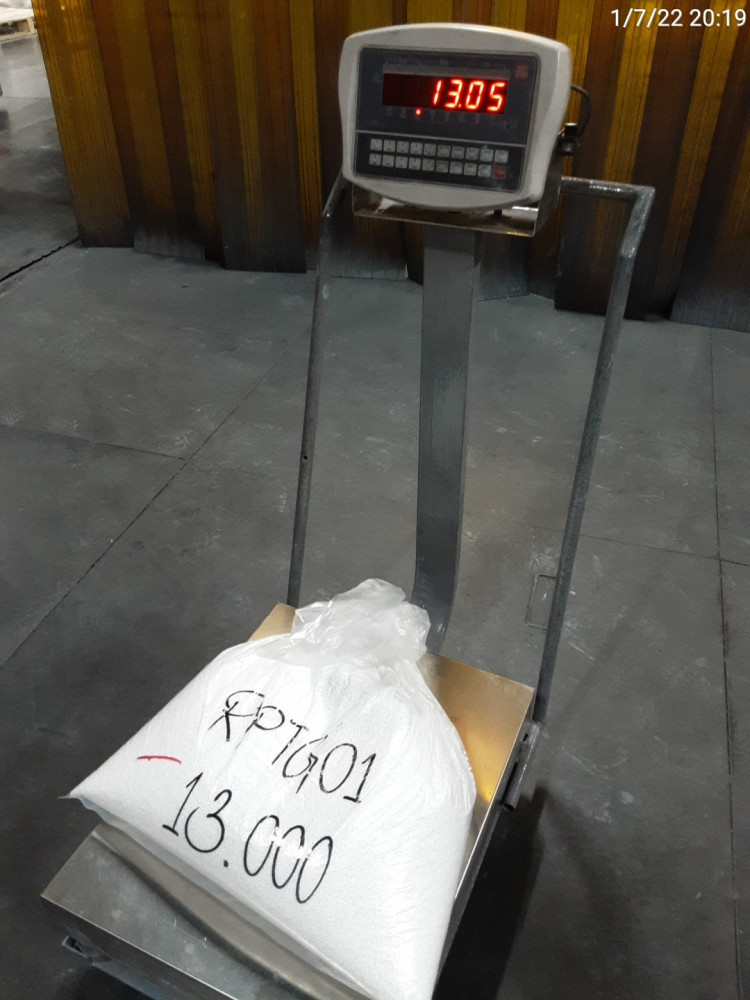 1/7/22 20:19
13.05
RPTG01
13.000